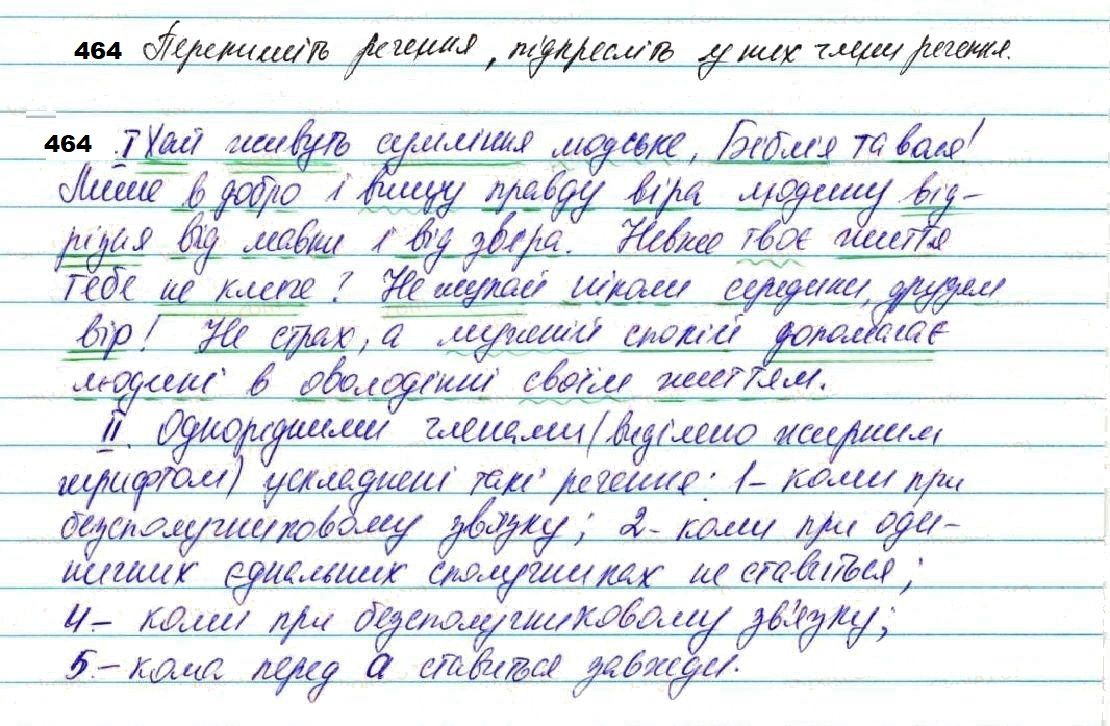 464 Перепишіть речення, підкресліть у них члени речення.
464 I Хай живуть сумління людське, Біблія та воля!
Лише в добро і вищу правду віра людину від-
різня від мавпи і від звіра. Невже твоє життя
тебе не кличе? Не шукай ніколи середини, друзям
вір! Не страх, а мужній спокій допомагає
людині в оволодінні своїм життям.
II. Однорідними членами (виділено жирним
шрифтом) ускладнені такі речення: 1- коми при
безсполучниковому зв'язку; 2- коми при оди-
ничних єднальних сполучниках не ставиться;
4.- коми при безсполучниковому зв'язку;
5.- кома перед а ставиться завжди.